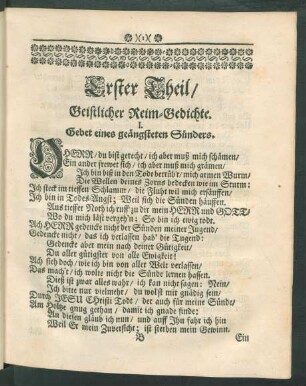 Erster Theil/
Geistlicher Reim-Gedichte.
I.
Gebet eines geängsteten Sünders.
O HERR/ du bist gerecht/ ich aber muß mich schämen/
Ein ander frewet sich/ ich aber muß mich grämen/
Ich bin biß in den Todt betrübt/ mich armen Wurm
Die Wellen deines Zorns bedecken wie im Sturm:
Ich steck im tieffen Schlamm/ die Fluht wil mich ersäuffen/
Ich bin in Todes-Angst; Weil sich die Sünden häuffen.
Aus tieffer Noth ich ruff zu dir mein HERR und GOTT/
Wo du mich läst vergehn: So bin ich ewig todt.
Ach HERR gedencke nicht der Sünden meiner Jugend/
Gedencke nicht/ das ich verlassen hab' die Tugend:
Gedenckt aber mein nach deiner Gütigkeit/
Du aller gütigster von aller Ewigkeit!
Ach sieh doch/ wie ich bin von aller Welt verlassen/
Das mach't/ ich wolte nicht die Sünde lernen hassen.
Dieß ist zwar alles wahr/ ich kan nicht sagen: Nein/
Ich bitte nur vielmehr/ du wolst mir gnädig sein/
Durch JESU Christi Todt/ der auch für meine Sünde/
Am Holtze gnug gethan/ damit ich gnade finde:
An diesen gläub ich nun/ und auff Ihn fahr ich hin
Weil Er mein Zuversicht; ist sterben mein Gewinn.
B
Ein